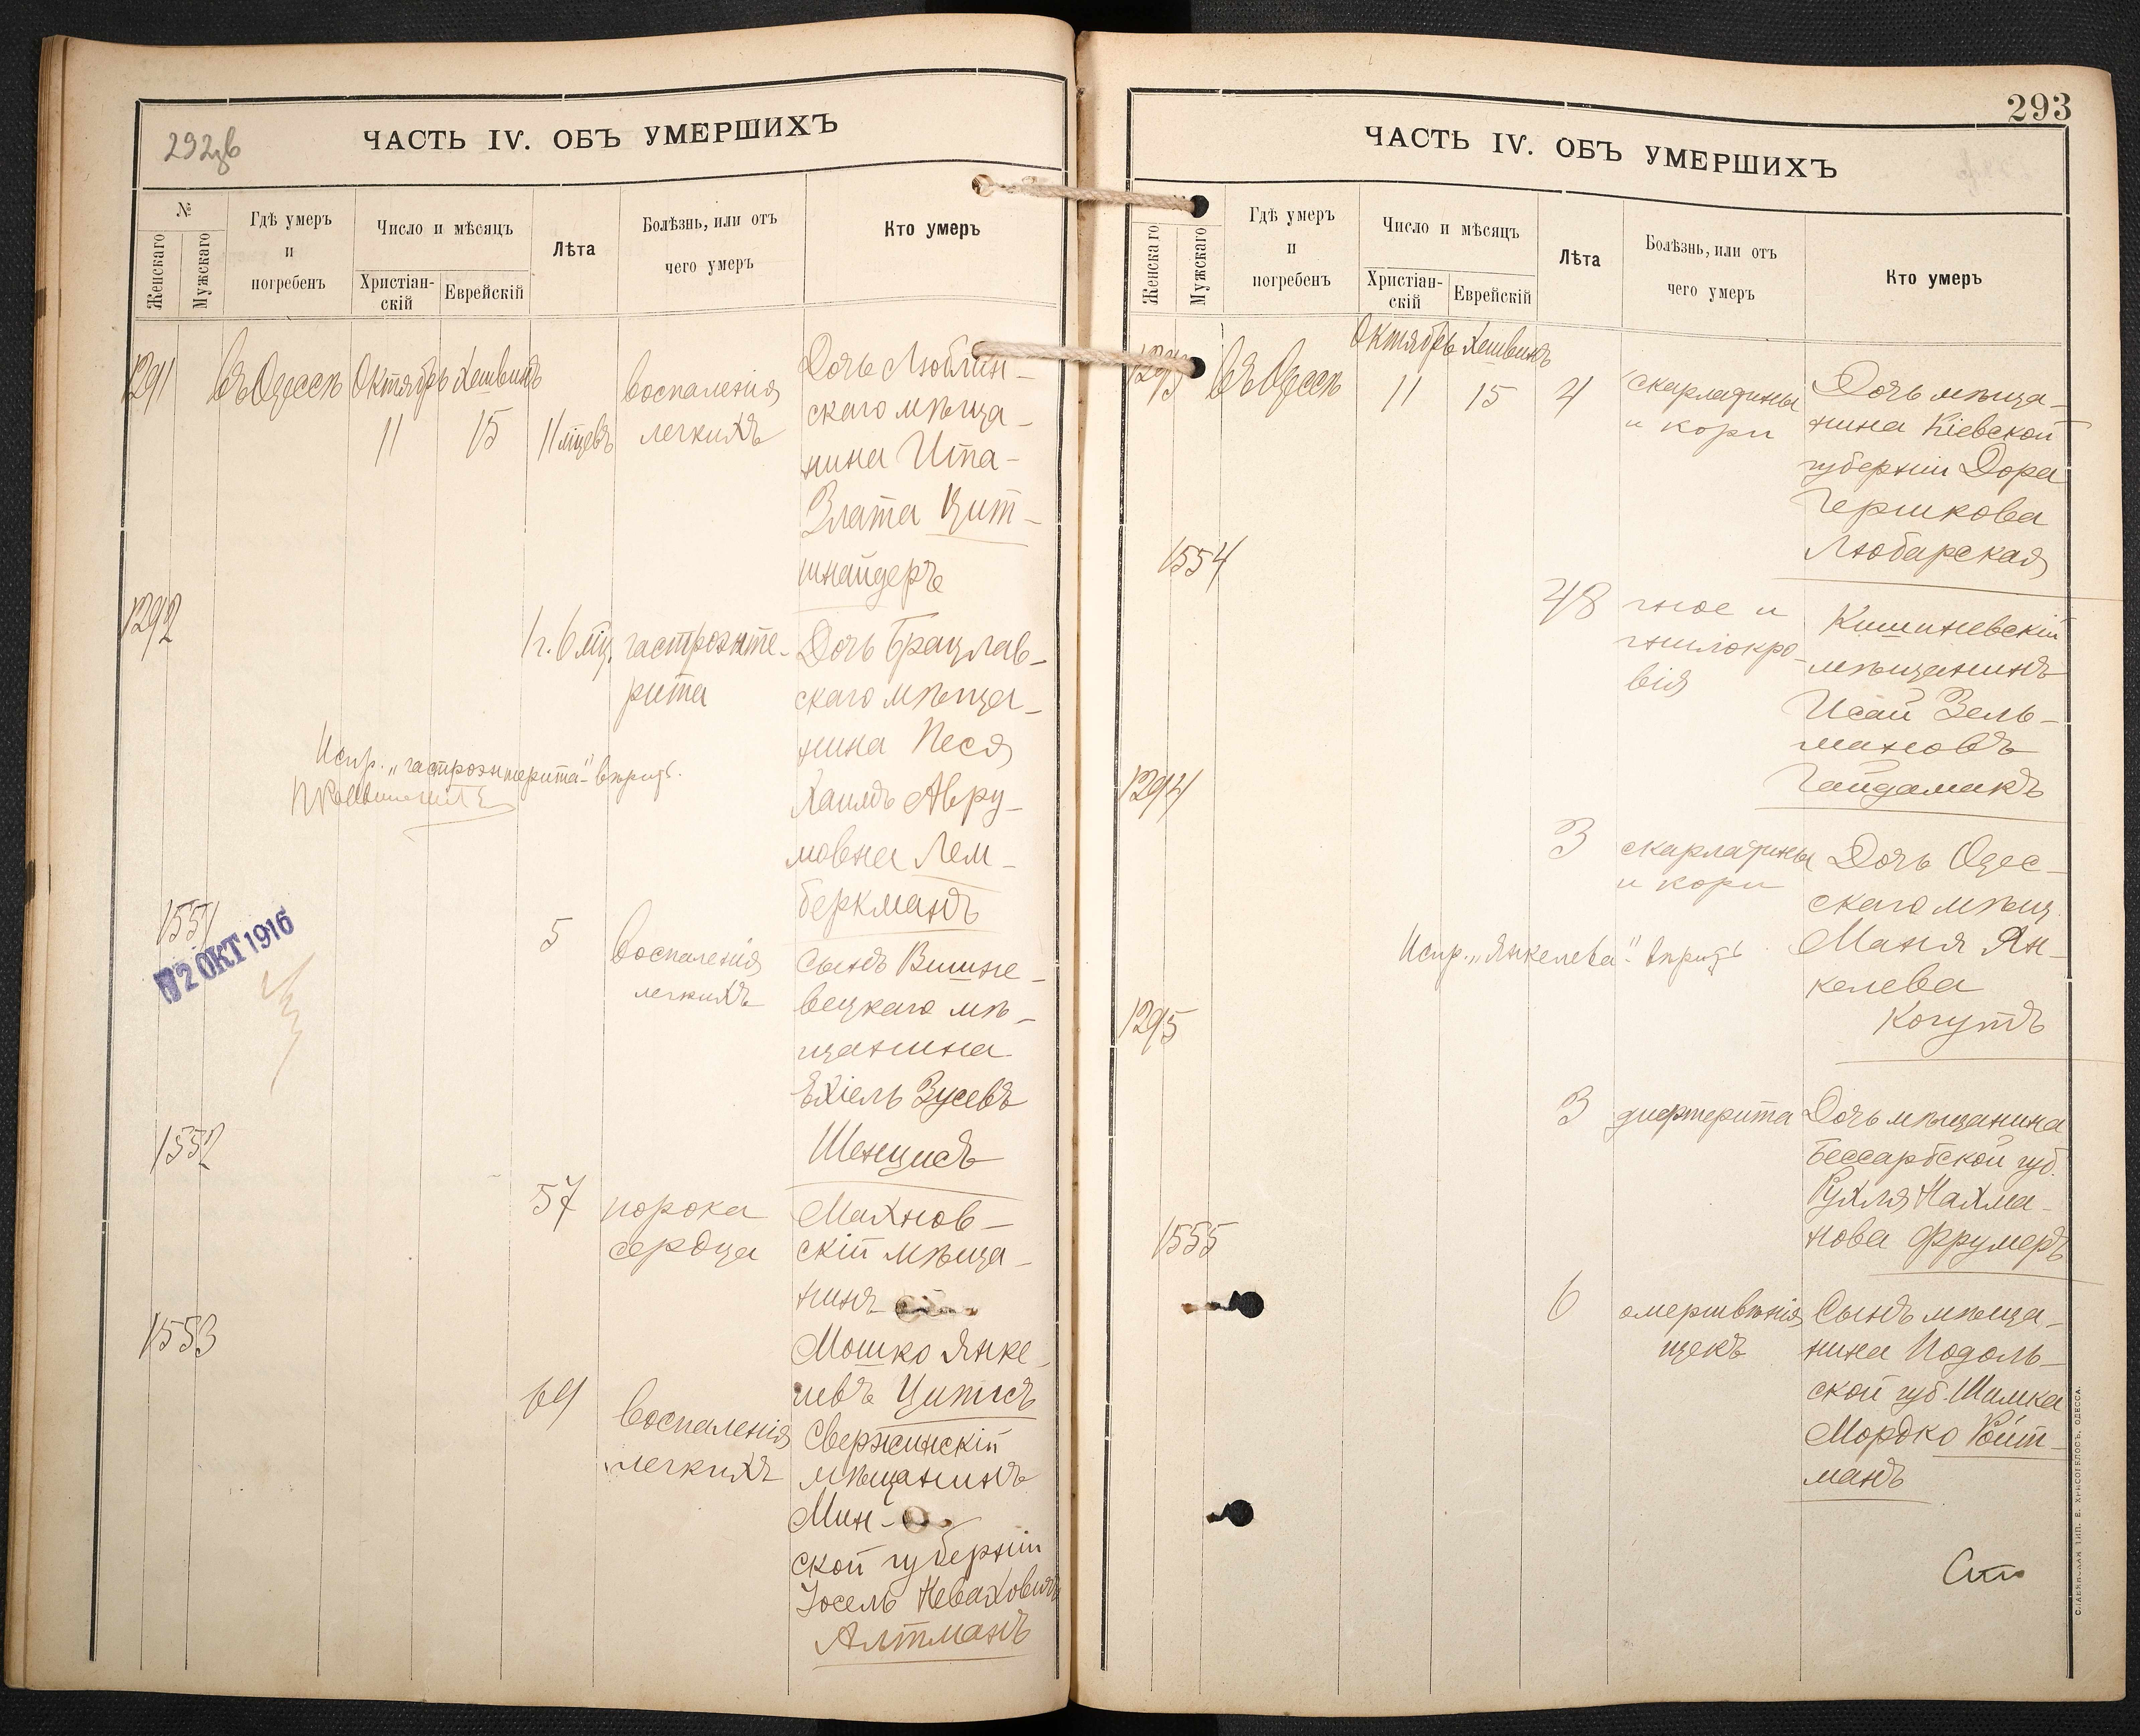 292об
ЧАСТЬ IV. ОБЪ УМЕРШИХЪ
№
Женскаго
Мужскаго
Гдѣ умеръ
и
погребенъ
Число и мѣсяцъ
Христіан-
скій
Еврейскій
Лѣта
Болѣзнь, или отъ
чего умеръ
Кто умеръ
1291
въ Одессѣ
Октябрь
Хешвинъ
11
15
11 мцевъ
воспаленія
легкихъ
Дочь Люблин-
скаго мѣща-
нина Ита-
Злата Цит-
шнайдеръ
1292
1 г. 6 мц.
гастроэнте-
рита
Дочь Брацлав-
скаго мѣща-
нина Песя
Хаимъ Авру-
мовна Лем-
беркманъ
Испр. „гастроэнтерита“ вѣрить.
1551
2 ОКТ 1916
5
воспаленія
легкихъ
Сынъ Вишне-
вецкаго мѣ-
щанина
Ехіель Зусевъ
Шенцисъ
1552
57
порока
сердца
Махнов-
скій мѣща-
нинъ
Мошко Янке-
левъ Цитисъ
1553
69
воспаленія
легкихъ
Свержинскій
мѣщанинъ
Мин-
ской губерніи
Іосель Неваховичъ
Алтманъ
293
ЧАСТЬ IV. ОБЪ УМЕРШИХЪ
Женскаго
Мужскаго
Гдѣ умеръ
и
погребенъ
Число и мѣсяцъ
Христіан-
скій
Еврейскій
Лѣта
Болѣзнь, или отъ
чего умеръ
Кто умеръ
1293
въ Одессѣ
Октябрь
Хешвинъ
11
15
4
скарлатины
и кори
Дочь мѣща-
нина Кіевской
губерніи Дора
Гершкова
Любарская
1554
48
гное и
гнилокро-
вія
Кишиневскій
мѣщанинъ
Исай Зель-
мановъ
Гайдамакъ
1294
3
скарлатины
и кори
Дочь Одес-
скаго мѣщ.
Маня Ян-
келева
Когутъ
Испр. „Янкелева“ вѣрить
1295
3
дифтерита
Дочь мѣщанина
Бессарабской губ.
Рухля Нахма-
нова Фрумеръ
1555
6
омертвѣнія
щекъ
Сынъ мѣща-
нина Подоль-
ской губ. Шимка
Мордко Ройт-
манъ
СЛАВЯНСКАЯ ТИП. Е. ХРИСОГЕЛОСЪ, ОДЕССА.